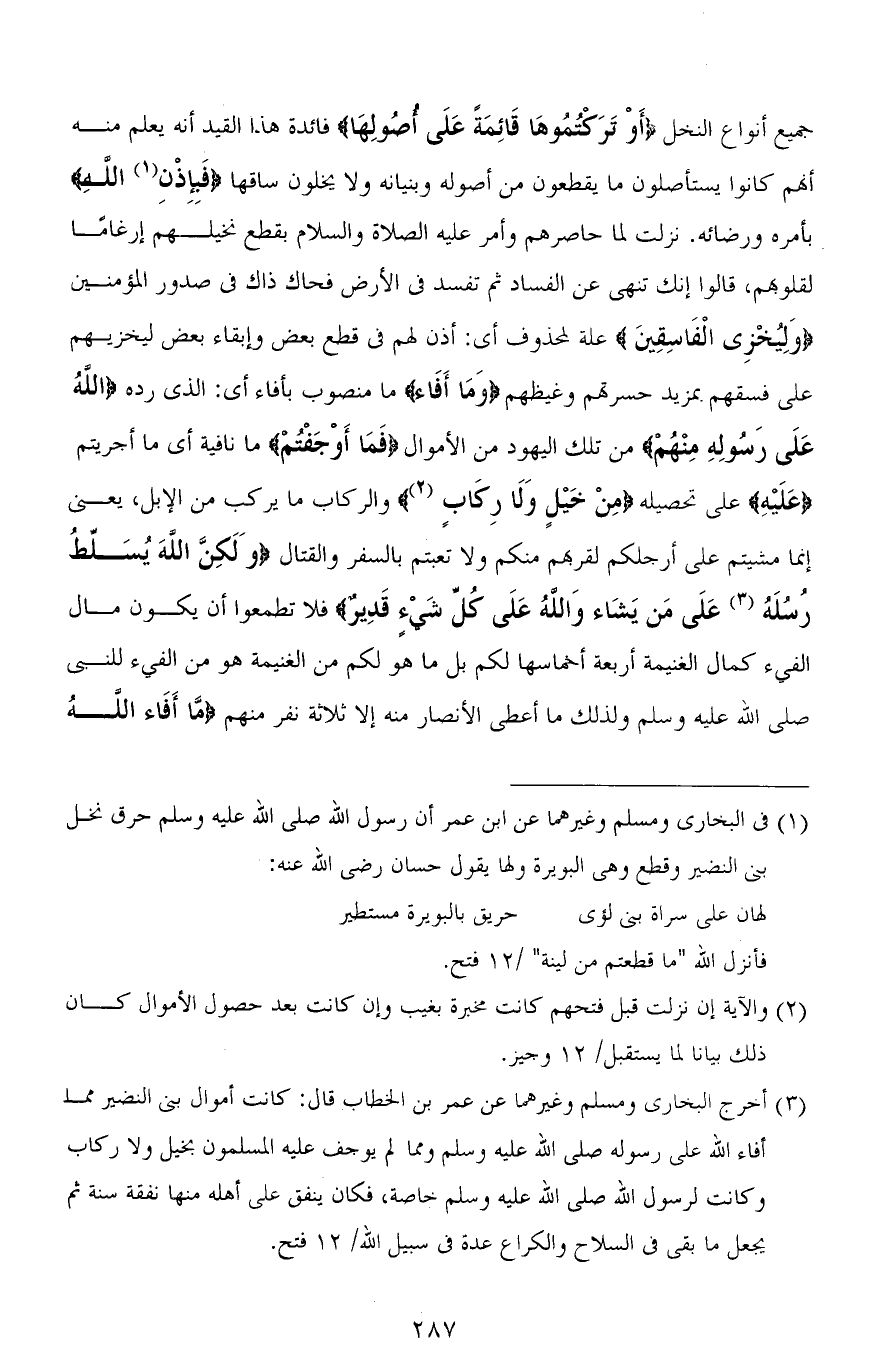 جميع أنواع النخل ﴿أَوْ تَرَكْتُمُوهَا قَائِمَةً عَلَى أُصُولِهَا﴾ فائدة هذا القيد أنه يعلم منه
أنهم كانوا يستأصلون ما يقطعون من أصوله وبنيانه ولا يخلون ساقها ﴿فَبِإِذْنِ(١) اللَّهِ﴾
بأمره ورضائه. نزلت لما حاصرهم وأمر عليه الصلاة والسلام بقطع نخيلهم إرغامًا
لقلوبهم، قالوا إنك تنهى عن الفساد ثم تفسد فى الأرض فحاك ذاك فى صدور المؤمنين
﴿وَلِيُخْزِى الْفَاسِقِينَ﴾ علة لمحذوف أى: أذن لهم فى قطع بعض وإبقاء بعض ليخزيهم
على فسقهم بمزيد حسرتهم وغيظهم ﴿وَمَا أَفَاء﴾ ما منصوب بأفاء أى: الذى رده ﴿اللَّهُ
عَلَى رَسُولِهِ مِنْهُمْ﴾ من تلك اليهود من الأموال ﴿فَمَا أَوْجَفْتُمْ﴾ ما نافية أى ما أجريتم
﴿عَلَيْهِ﴾ على تحصيله ﴿مِنْ خَيْلٍ وَلَا رِكَابٍ (٢)﴾ والركاب ما يركب من الإبل، يعنى
إنما مشيتم على أرجلكم لقربهم منكم ولا تعبتم بالسفر والقتال ﴿وَلَكِنَّ اللَّهَ يُسَلِّطُ
رُسُلَهُ (٣) عَلَى مَن يَشَاء وَاللَّهُ عَلَى كُلِّ شَيْءٍ قَدِيرٌ﴾ فلا تطمعوا أن يكون مال
الفيء كمال الغنيمة أربعة أخماسها لكم بل ما هو لكم من الغنيمة هو من الفيء للنبى
صلى الله عليه وسلم ولذلك ما أعطى الأنصار منه إلا ثلاثة نفر منهم ﴿مَّا أَفَاء اللَّهُ
(١) فى البخارى ومسلم وغيرهما عن ابن عمر أن رسول الله صلى الله عليه وسلم حرق نخل
بنى النضير وقطع وهى البويرة ولها يقول حسان رضى الله عنه:
لهان على سراة بنى لؤى حريق بالبويرة مستطير
فأنزل الله "ما قطعتم من لينة" /١٢ فتح.
(٢) والآية إن نزلت قبل فتحهم كانت مخبرة بغيب وإن كانت بعد حصول الأموال كان
ذلك بيانا لما يستقبل/ ١٢ وجيز.
(٣) أخرج البخارى ومسلم وغيرهما عن عمر بن الخطاب قال: كانت أموال بنى النضير مما
أفاء الله على رسوله صلى الله عليه وسلم ومما لم يوجف عليه المسلمون بخيل ولا ركاب
وكانت لرسول الله صلى الله عليه وسلم خاصة، فكان ينفق على أهله منها نفقة سنة ثم
يجعل ما بقى فى السلاح والكراع عدة فى سبيل الله/ ١٢ فتح.
٢٨٧